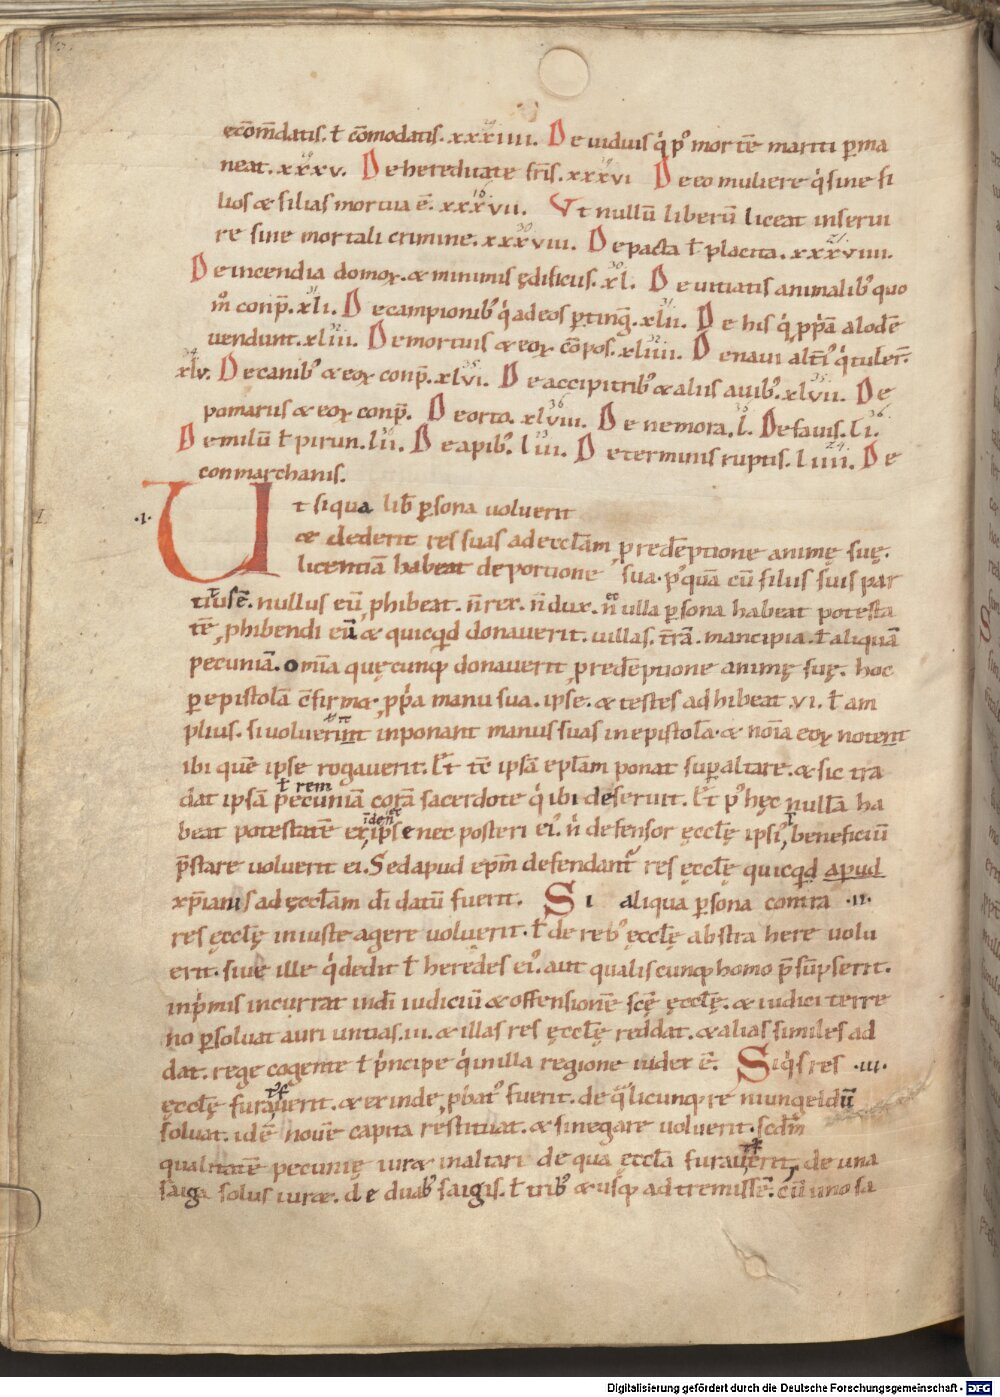 ęcōm̄datis. ł cōmodatis. xxxiiii. De uiduis q̇ p' mortē mariti ꝑma
neat. xxxv. De hereditate fr̄is. xxxvi De eo muliere q̇ sine fi
lios & filias mortua ē. xxxvii. Ut nullū liberū liceat inserui
re sine mortali crimine. xxxviii. De pacta ł placita. xxxviiii.
De incendia domoꝝ. & minimis ędificiis. xl. De uitiatis animalib' quo
m̊ conp̄. xli. De campionib' q̇ ad eos ꝑtinḡ. xlii. De his q̇ ꝓp̄a alodē
uendunt. xliii. De mortuis & eoꝝ cōpos. xliiii. De naui alt̄i' q̇ tuler̄.
xlv. De canib' & eoꝝ conp̄. xlvi. De accipitrib' & aliis auib'. xlvii. De
pomariis & eoꝝ conp̄. De orto. xlviii. De nemora. l. De fauis. li.
De milū ł pirun. lii. De apib'. liii. De terminis ruptis. liiii. De
conmarchanis.
.I. Ut siqua lib̄ ꝑsona uoluerit
& dederit res suas ad eccl̄am ꝓ redēptione animę suę.
licentiā habeat de portione sua. p' quā cū filiis suis par
titus ē. nullus eū ꝓhibeat. n̄ rex. n̄ dux. n̄ ulla ꝑsona habeat potesta
tē ꝓhibendi eū & quicqd donauerit. uillas. t̄rā. mancipia. ł aliquā
pecuniā. om̄ia quęcunq; donauerit ꝓ redēptione animę suę. hoc
ꝑ epistolā c̄firm&. ꝓp̄a manu sua. ipse. & testes adhibeat. vi. ł am
plius. si uoluerint inponant manus suas in epistola. & nōia eoꝝ notent
ibi quē ipse rogauerit. Et tē ipsā epl̄am ponat suꝑ altare. & sic tra
ł rem
dat ipsā pecuniā corā sacerdote q̇ ibi deseruit. Et p' hęc nullā ha
beat potestatē ex ipse nec posteri ei'. n̄ defensor ęccl̄ę ipsi' beneficiū
p̄stare uoluerit ei. Sed apud ep̄m defendant' res ęccl̄ę quicqd apud
xp̄ianis ad ęccl̄am dī datū fuerit. Si aliqua ꝑsona contra .II.
res ęccl̄ę iniuste agere uoluerit. ł de reb' ęccl̄ę abstra here uolu
erit. siue ille q̇ dedit ł heredes ei'. aut qualiscunq; homo p̄sūpserit.
inp̄mis incurrat indī iudiciū & offensionē sc̄ę ęccl̄ę. & iudici terre
no ꝑsoluat auri untias. iii. & illas res ęccl̄ę reddat. & alias similes ad
dat. rege cogente ł p̄ncipe q̇ in illa regione iudex ē. Siq̇s res .III.
ęccl̄ę furauerit. & exinde ꝓbat' fuerit. de q̄licunq; re niungeldū
soluat. id ē nouē capita restituat. & si negare uoluerit. scd̄m
qualitatē pecunię iur& in altari de qua ęccl̄a furauerit. de una
saiga solus iur&. de duab' saigis. ł trib' & usq; ad tremissē. cū uno sa
Digitalisierung gefördert durch die Deutsche Forschungsgemeinschaft - DFG